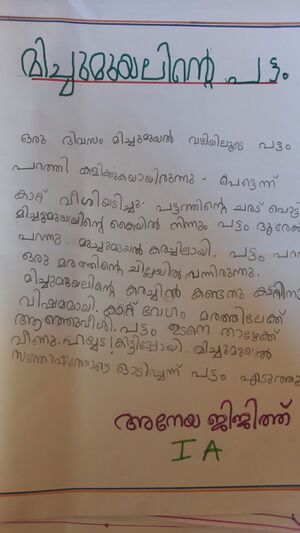 മിച്ചുമുയലിൻ്റെ പട്ടം
ഒരു ദിവസം മിച്ചുമുയൽ വഴിയിലൂടെ പട്ടം
പറത്തി കളിക്കുകയായിരുന്നു - പെട്ടെന്ന്
കാറ്റ് വീശിയടിച്ചു. പട്ടത്തിൻ്റെ ചരട് പൊട്ടി
മിച്ചുമുയലിൻ്റെ കൈയിൽ നിന്നും പട്ടം ദൂരേക്ക്
പറന്നു. മിച്ചുമുയൽ കരച്ചിലായി. പട്ടം പറന്ന്
ഒരു മരത്തിൻ്റെ ചില്ലയിൽ വന്നിരുന്നു.
മിച്ചുമുയലിൻ്റെ കരച്ചിൻ കണ്ടതു കാറ്റിനു
വിഷമമായി. കാറ്റ് വേഗം മരത്തിലേക്ക്
ആഞ്ഞുവീശി. പട്ടം ഉടനെ താഴേക്ക്
വീന്നു. ഹയ്യട! കിട്ടിപ്പോയി. മിച്ചുമുയൽ
സന്തോഷത്തോടെ ഓടിച്ചന്ന് പട്ടം എടുത്തു
അനേയ ജിജിത്ത്
I A